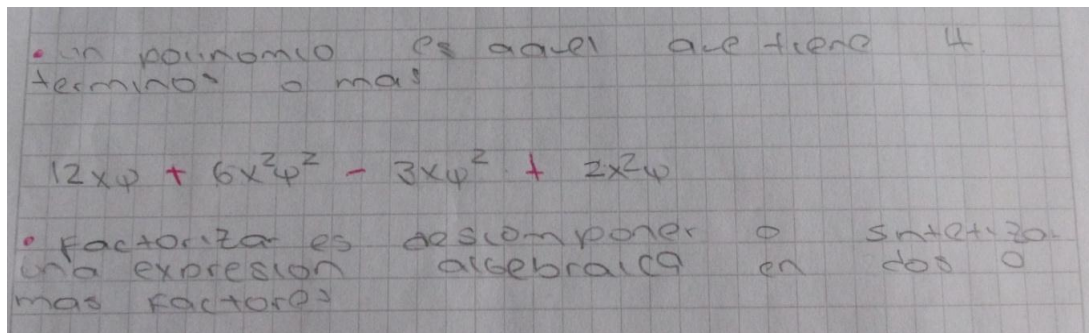 • un polinomio es aquel que tiene 4
terminos o mas
12xy + 6x²y² - 3xy² + 2x²y
• Factorizar es descomponer o sintetizar
una expresion algebraica en dos o
mas Factores